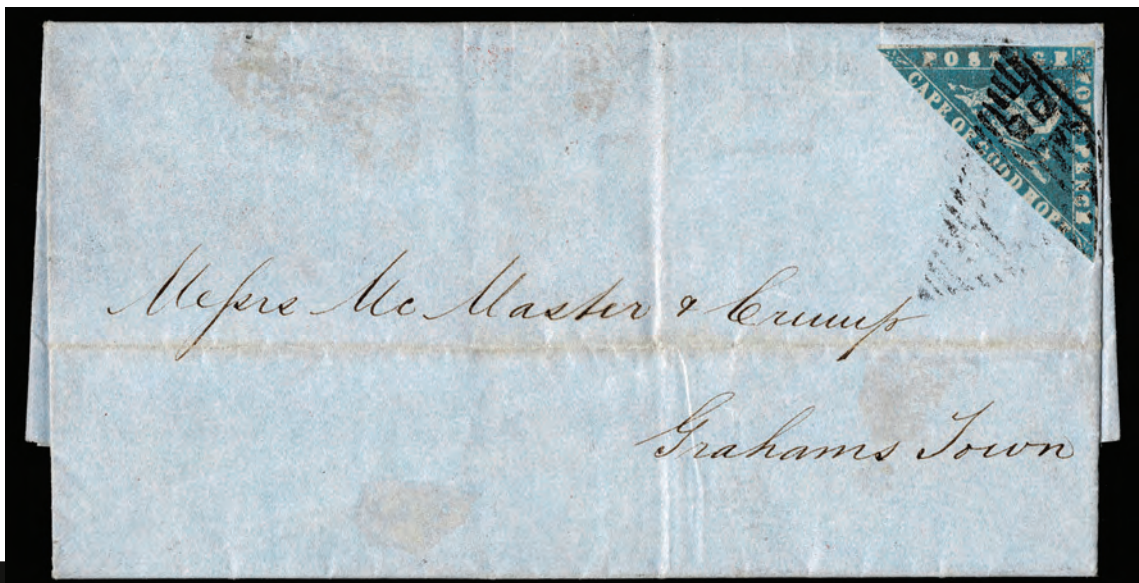 POSTAGE
FOUR PENCE
CAPE OF GOOD HOPE
Messrs McMaster & Crump
Grahams Town